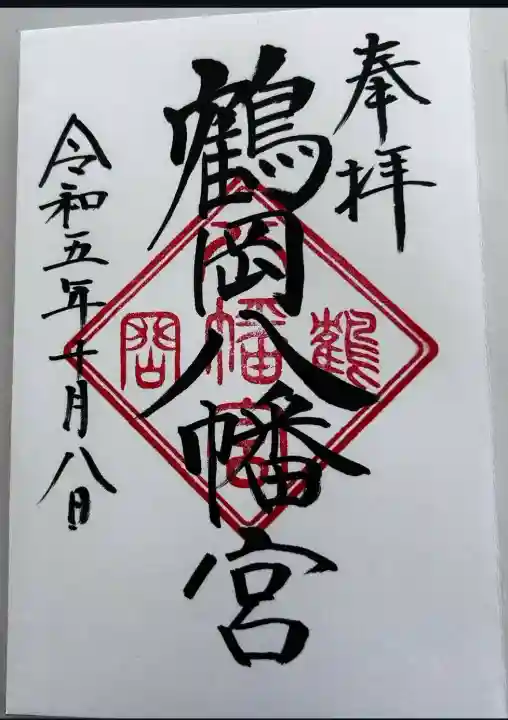 奉拝
鶴岡八幡宮
令和五年十月八日
鶴
八幡宮
岡